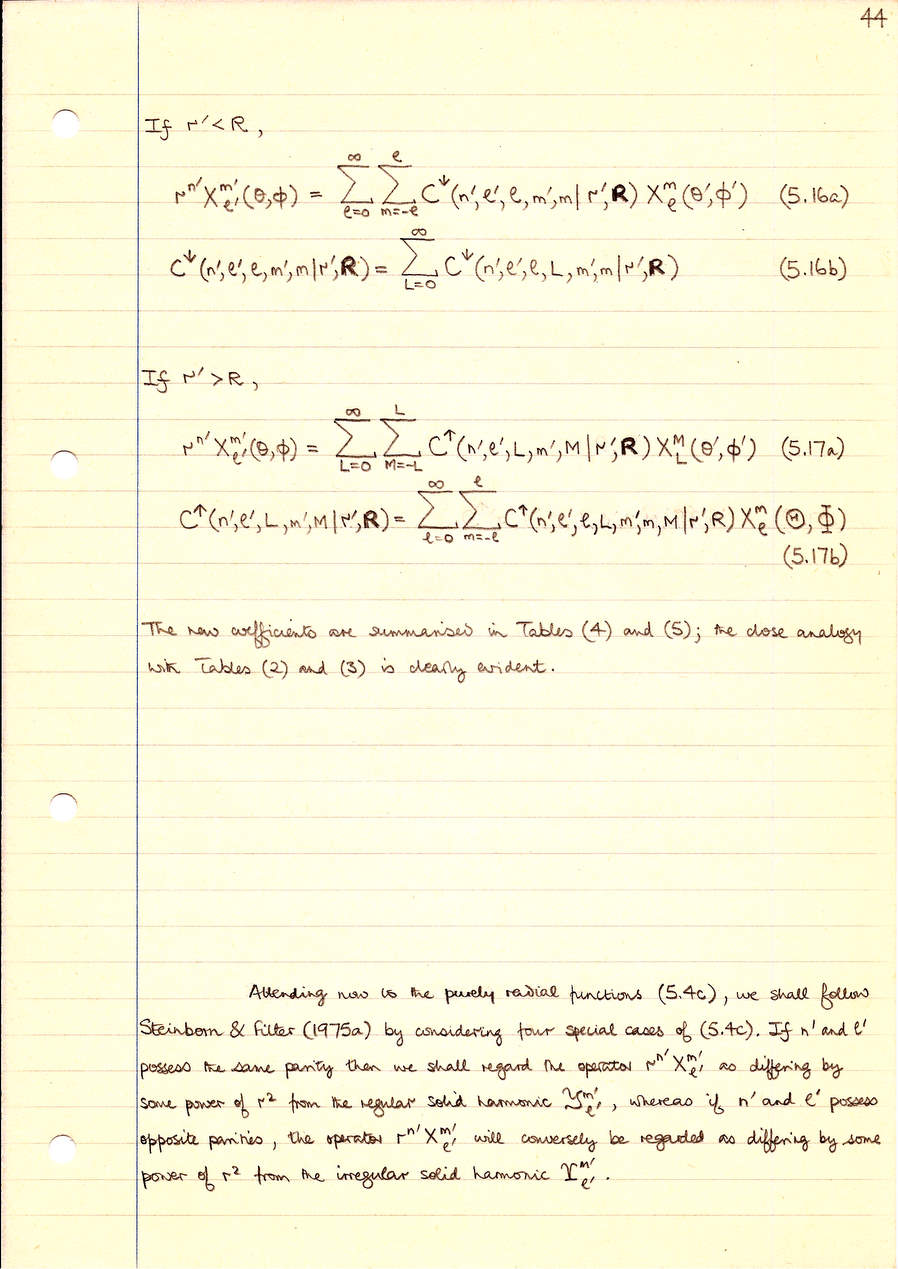 44
If r′ < R,
r^{n′} X_{ℓ′}^{m′}(θ,ϕ) = ∑_{ℓ=0}^{∞} ∑_{m=-ℓ}^{ℓ} C^↓(n′,ℓ′,ℓ,m′,m|r′,𝐑) X_ℓ^m(θ′,ϕ′) (5.16a)
C^↓(n′,ℓ′,ℓ,m′,m|r′,𝐑) = ∑_{L=0}^{∞} C^↓(n′,ℓ′,ℓ,L,m′,m|r′,𝐑) (5.16b)
If r′ > R,
r^{n′} X_{ℓ′}^{m′}(θ,ϕ) = ∑_{L=0}^{∞} ∑_{M=-L}^{L} C^↑(n′,ℓ′,L,m′,M|r′,𝐑) X_L^M(θ′,ϕ′) (5.17a)
C^↑(n′,ℓ′,L,m′,M|r′,𝐑) = ∑_{ℓ=0}^{∞} ∑_{m=-ℓ}^{ℓ} C^↑(n′,ℓ′,ℓ,L,m′,m,M|r′,R) X_ℓ^m(Θ,Φ)
(5.17b)
The new coefficients are summarised in Tables (4) and (5); the close analogy
with Tables (2) and (3) is clearly evident.
Attending now to the purely radial functions (5.4c), we shall follow
Steinborn & Filter (1975a) by considering four special cases of (5.4c). If n′ and ℓ′
possess the same parity then we shall regard the operator r^{n′} X_{ℓ′}^{m′} as differing by
some power of r² from the regular solid harmonic 𝒴_{ℓ′}^{m′}, whereas if n′ and ℓ′ possess
opposite parities, the operator r^{n′} X_{ℓ′}^{m′} will conversely be regarded as differing by some
power of r² from the irregular solid harmonic ϒ_{ℓ′}^{m′}.